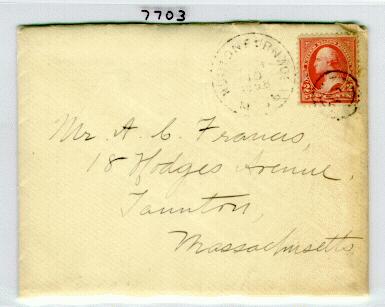 7703
Mr. A. C. Francis,
18 Hodges Avenue,
Taunton,
Massachusetts